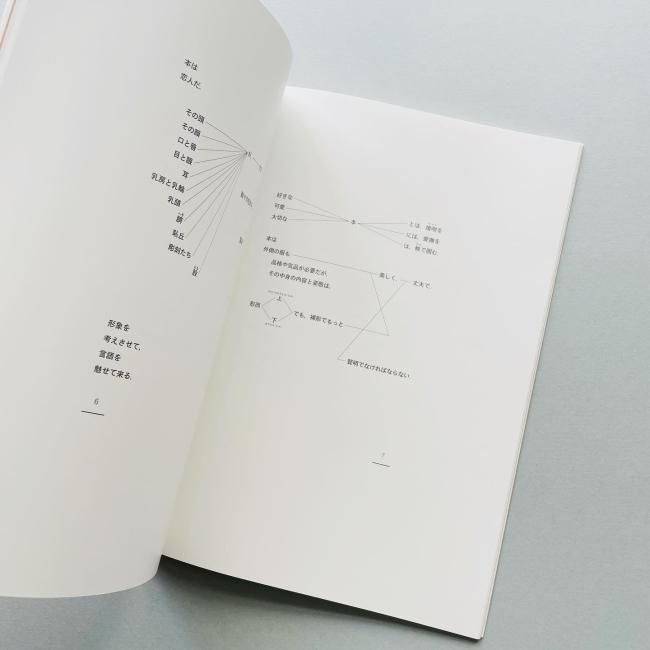 本は
恋人だ。
その頭
その顔
口と唇
目と眼
耳
乳房と乳輪
乳頭
臍
恥丘
彫刻たち
形象を
考えさせて、
言語を
魅せて来る。
6
好きな
可愛
大切な
本
とは、接吻を
には、愛撫を
は、腕で囲む。
本は
外側の服も
品格や気品が必要だが、
その中身の内容と姿態は、
美しく、
丈夫で、
形而
上
下
でも、裸形でもっと
賢明でなければならない。
7